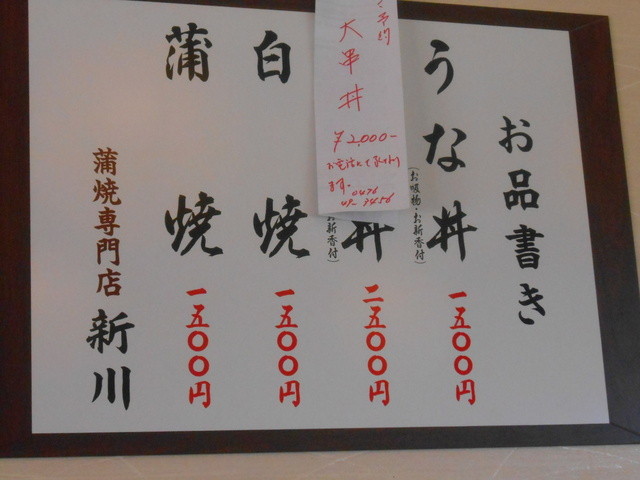 お品書き
うな丼
(お吸物・お新香付)
一五〇〇円
予約
大串丼
¥2,000-
お電話にて
ます。
0476
丼
お新香付)
二五〇〇円
白焼
一五〇〇円
蒲焼
一五〇〇円
蒲焼専門店
新川